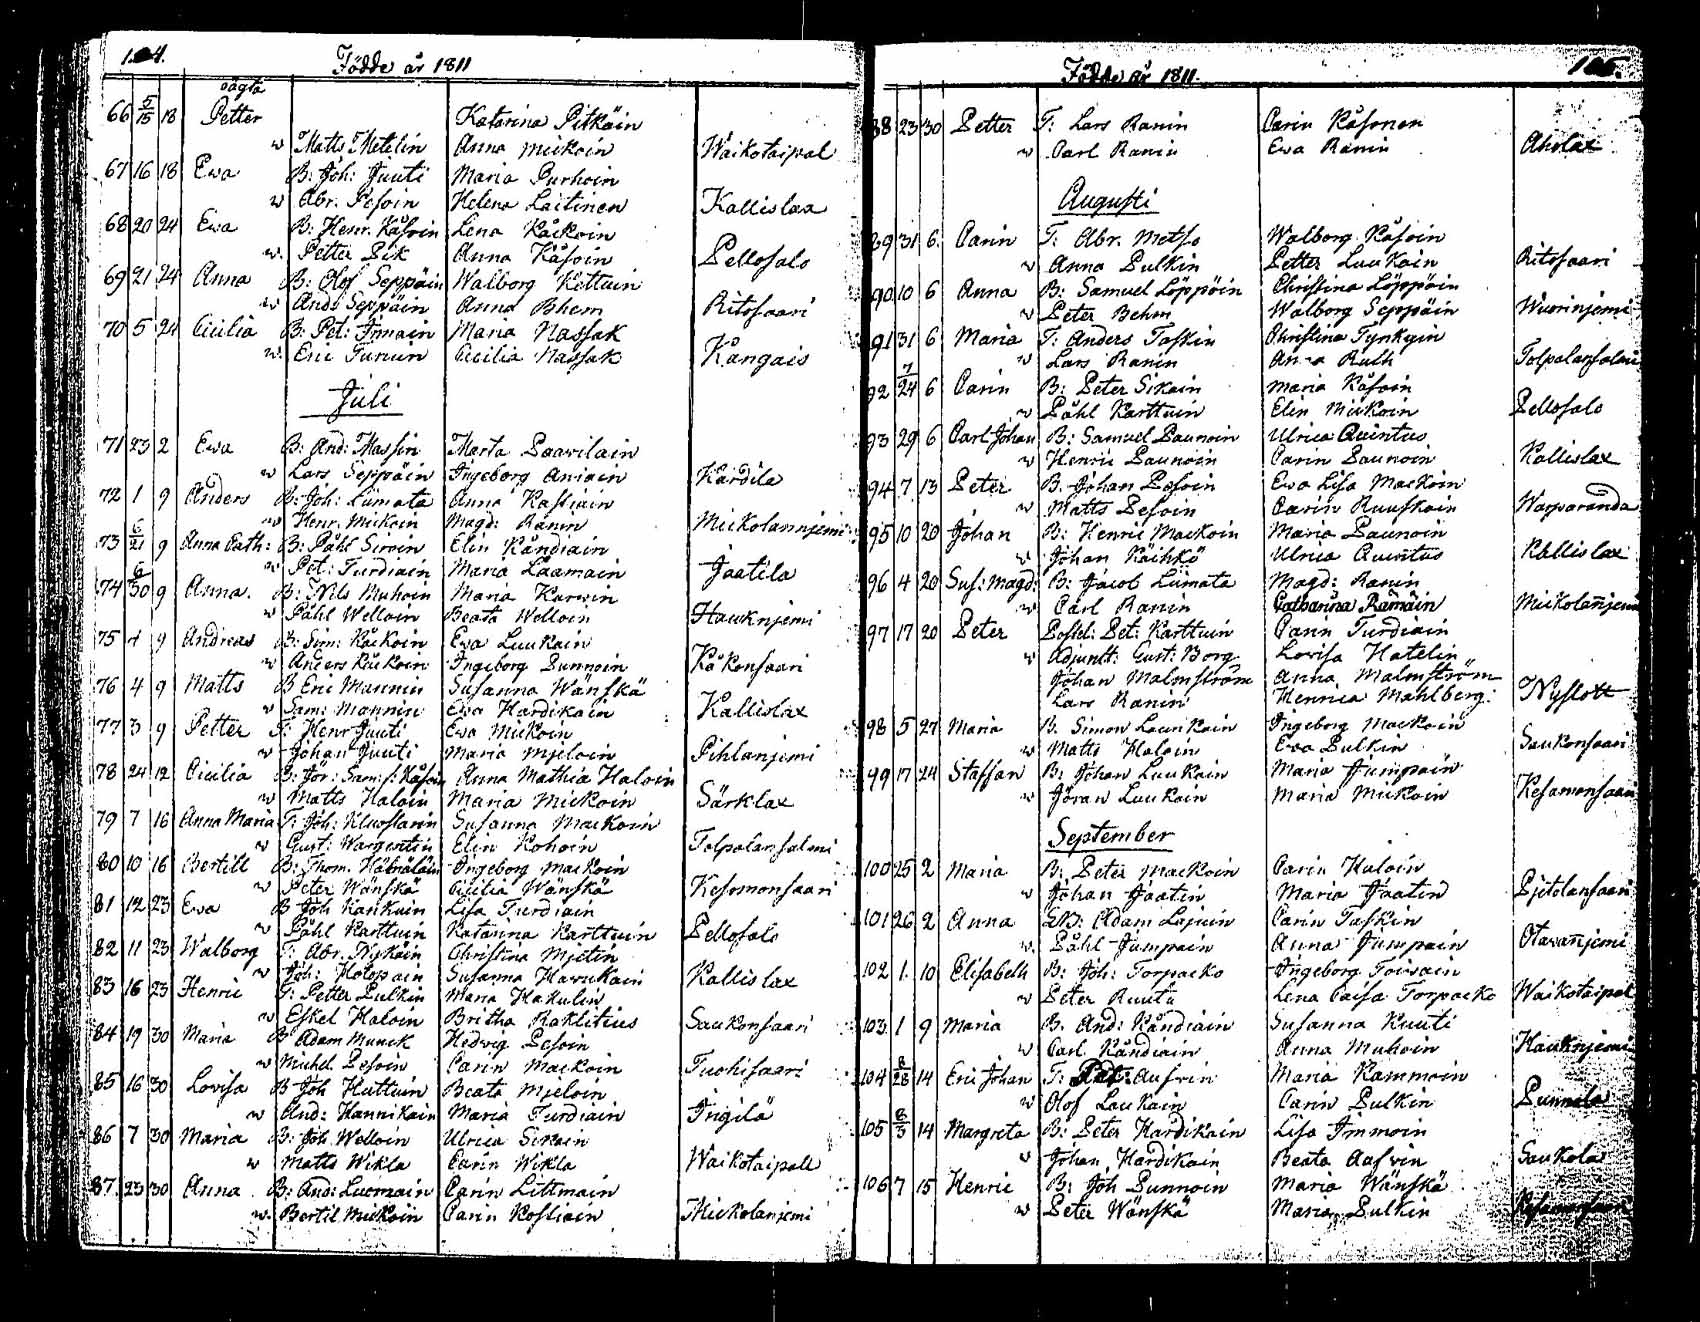 104.
Födde år 1811
oägta
66 5/15 18 Petter Katarina Pitkäin
w Matts Metelin Anna Mickoin Waikotaipal
67 16 18 Ewa B: Joh: Juuti Maria Purhoin
w Abr. Pesoin Helena Laitinen Kallislax
68 20 24 Ewa B: Henr. Kåsoin Lena Kåckoin
w Petter Pik Anna Kåsoin Pellosalo
69 21 24 Anna B: Olof Seppäin Walborg Kettuin
w Ands Seppäin Anna Bhem Ritosaari
70 5 24 Cicilia B: Pet: Immain Maria Nassak
w Eric Tunun Cicilia Nassak Kångais
Juli
71 23 2 Ewa B: And: Massin Marta Paavilain
w Lars Seppäin Ingeborg Aniain Kårdila
72 1 9 Anders B: Joh: Liimata Anna Kastiain
w Henr. Mickoin Magd: Ranin Mickolannjemi
73 6/21 9 Anna Cath: B: Påhl Sirvin Elin Kåndiain
w Pet: Turdiain Maria Laamain Jaatila
74 6/30 9 Anna. B: Nils Muhoin Maria Karvin
w Påhl Welloin Beata Welloin Hauknjemi
75 4 9 Andreas B: Sim: Kåckoin Ewa Luukain
w Anders Kåckoin Ingeborg Sunnoin Kåkonsaari
76 4 9 Matts B Eric Mannin Susanna Wänskä
w Sam: Mannin Ewa Hardikain Kallislax
77 3 9 Petter T: Henr Juuti Ewa Mickoin
w Johan Juuti Maria Mjeloin Pihlanjemi
78 24 12 Cicilia B: Jor: Sam: s: Kåsoin Anna Mathia Haloin
w Matts Haloin Maria Mickoin Särklax
79 7 16 Anna Maria T: Joh: Kluostarin Susanna Mackoin
w Gust: Wargentin Elin Kohoin Tolpalansalmi
80 10 16 Bertill B: Thom: Håbåläin Ingeborg Mackoin
w Peter Wänskä Cicilia Wänskä Kesamonsaari
81 12 23 Ewa B Joh Kankuin Lisa Turdiain
w Påhl Karttuin Katarina Karttuin Pellosalo
82 11 23 Walborg T: Abr. Nykäin Christina Mjetin
w Joh: Kolopain Susanna Haruckain Kallislax
83 16 23 Henric T: Petter Pulkin Maria Hakulin
w Eskel Haloin Britha Raklitius Saukonsaari
84 19 30 Maria B Adam Munck Hedvig Pesoin
w Michel Pesoin Carin Mackoin Tuohisaari
85 16 30 Lovisa B Joh Huttuin Beata Mjeloin
w And: Hannikain Maria Turdiain Ingilä
86 7 30 Maria B: Joh Welloin Ulrica Sikain
w Matts Wikla Carin Wikla Waikotaipall
87 23 30 Anna B: And: Luomain Carin Littmain
w Bertil Mickoin Carin Kostiain Mickolanjemi
105.
Födde år 1811.
88 23 30 Petter T: Lars Ranin Carin Kåsonen
w Carl Ranin Ewa Ranin Aholax
Augusti
89 31 6. Carin T: Abr. Metso Walborg Kåsoin
w Anna Pulkin Petter Luukain Ritosaari
90 10 6 Anna B: Samuel Löppöin Christina Löppöin
w Peter Behm Walborg Seppäin Wuorinjemi
91 31 6 Maria T: Anders Taskin Christina Tynkyin
w Lars Ranin Anna Ruth Tolpalansalmi
92 7/24 6 Carin B: Peter Sikain Maria Kåsoin
w Påhl Karttuin Elin Mickoin Pellosalo
93 29 6 Carl Johan B: Samuel Paunoin Ulrica Quintus
w Henric Paunoin Carin Paunoin Kallislax
94 7 13 Peter B. Johan Pesoin Ewa Lisa Mackoin
w Matts Pesoin Carin Ruuskain Warparanda
95 10 20 Johan B: Henric Mackoin Maria Paunoin
w Johan Käihkö Ulrica Quintus Kallislax
96 4 20 Sus: Magd: B: Jacob Liimata Magd: Ranin
w Carl Ranin Catharina Rämäin Mickolanjemi
97 17 20 Peter Postel: Pet: Karttuin Carin Turdiain
w Adjunkt: Gust: Borg Lovisa Hatelin
Johan Malmström Anna Malmström
Lars Ranin Henrica Mahlberg: Nyslott
98 5 27 Maria B. Simon Laurikain Ingeborg Mackoin
w Matts Haloin Ewa Pulkin Saukonsaari
99 17 24 Staffan B: Johan Luukain Maria Jumpain
w Jöran Luukain Maria Mickoin Kesamonsaari
September
100 25 2 Maria B. Peter Mackoin Carin Haloin
w Johan Jaatin Maria Jaatin Pjetolansaari
101 26 2 Anna B: Adam Lajuin Carin Taskin
w Påhl Jumpain Anna Jumpain Otavanjemi
102 1. 10 Elisabeth B: Joh: Torpacko Ingeborg Toivain
w Peter Ruuta Lena Caisa Torpacko Waikotaipal
103 1 9 Maria B. And: Kåndiain Susanna Kuuti
w Carl Kåndiain Anna Muhoin Hauknjemi
104 8/28 14 Eric Johan T: Pet: Aufvin Maria Kammoin
w Olof Laukain Carin Pulkin Punnila
105 8/3 14 Margreta B: Peter Hardikain Lisa Immoin
w Johan Hardikain Beata Aafvin Saukola
106 7 15 Henric B: Joh Punnoin Maria Wänskä
w Peter Wänskä Maria Pulkin Kesamonsaari